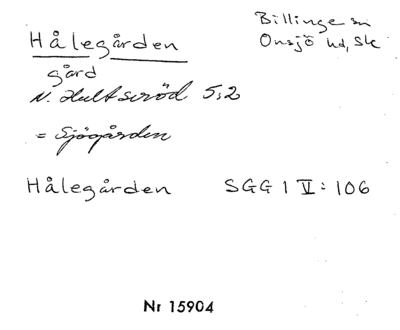 Hålegården
Billinge sn
Onsjö hd, Sk
gård
N. Hultseröd 5:2
= Sjögården
Hålegården SGG 1 V: 106
Nr 15904